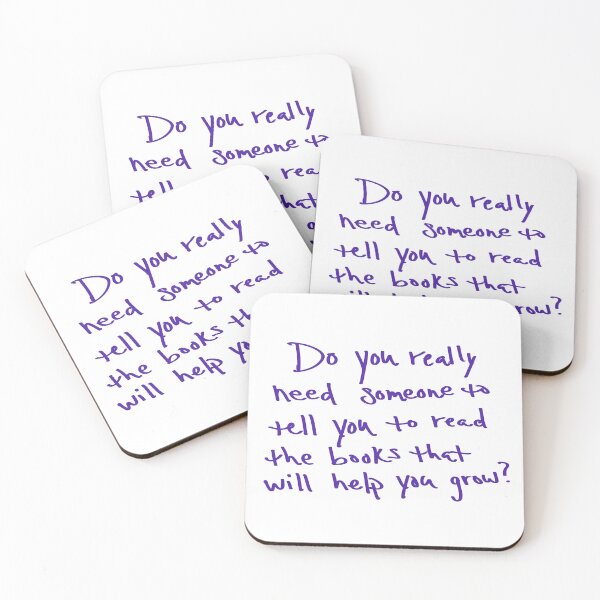 Do you really
need someone to
tell to rea
hat
Do you really
need someone to
tell you to read
the books that
row?
Do you really
need someone to
tell you to read
the books th
will help yo
Do you really
need someone to
tell you to read
the books that
will help you grow?